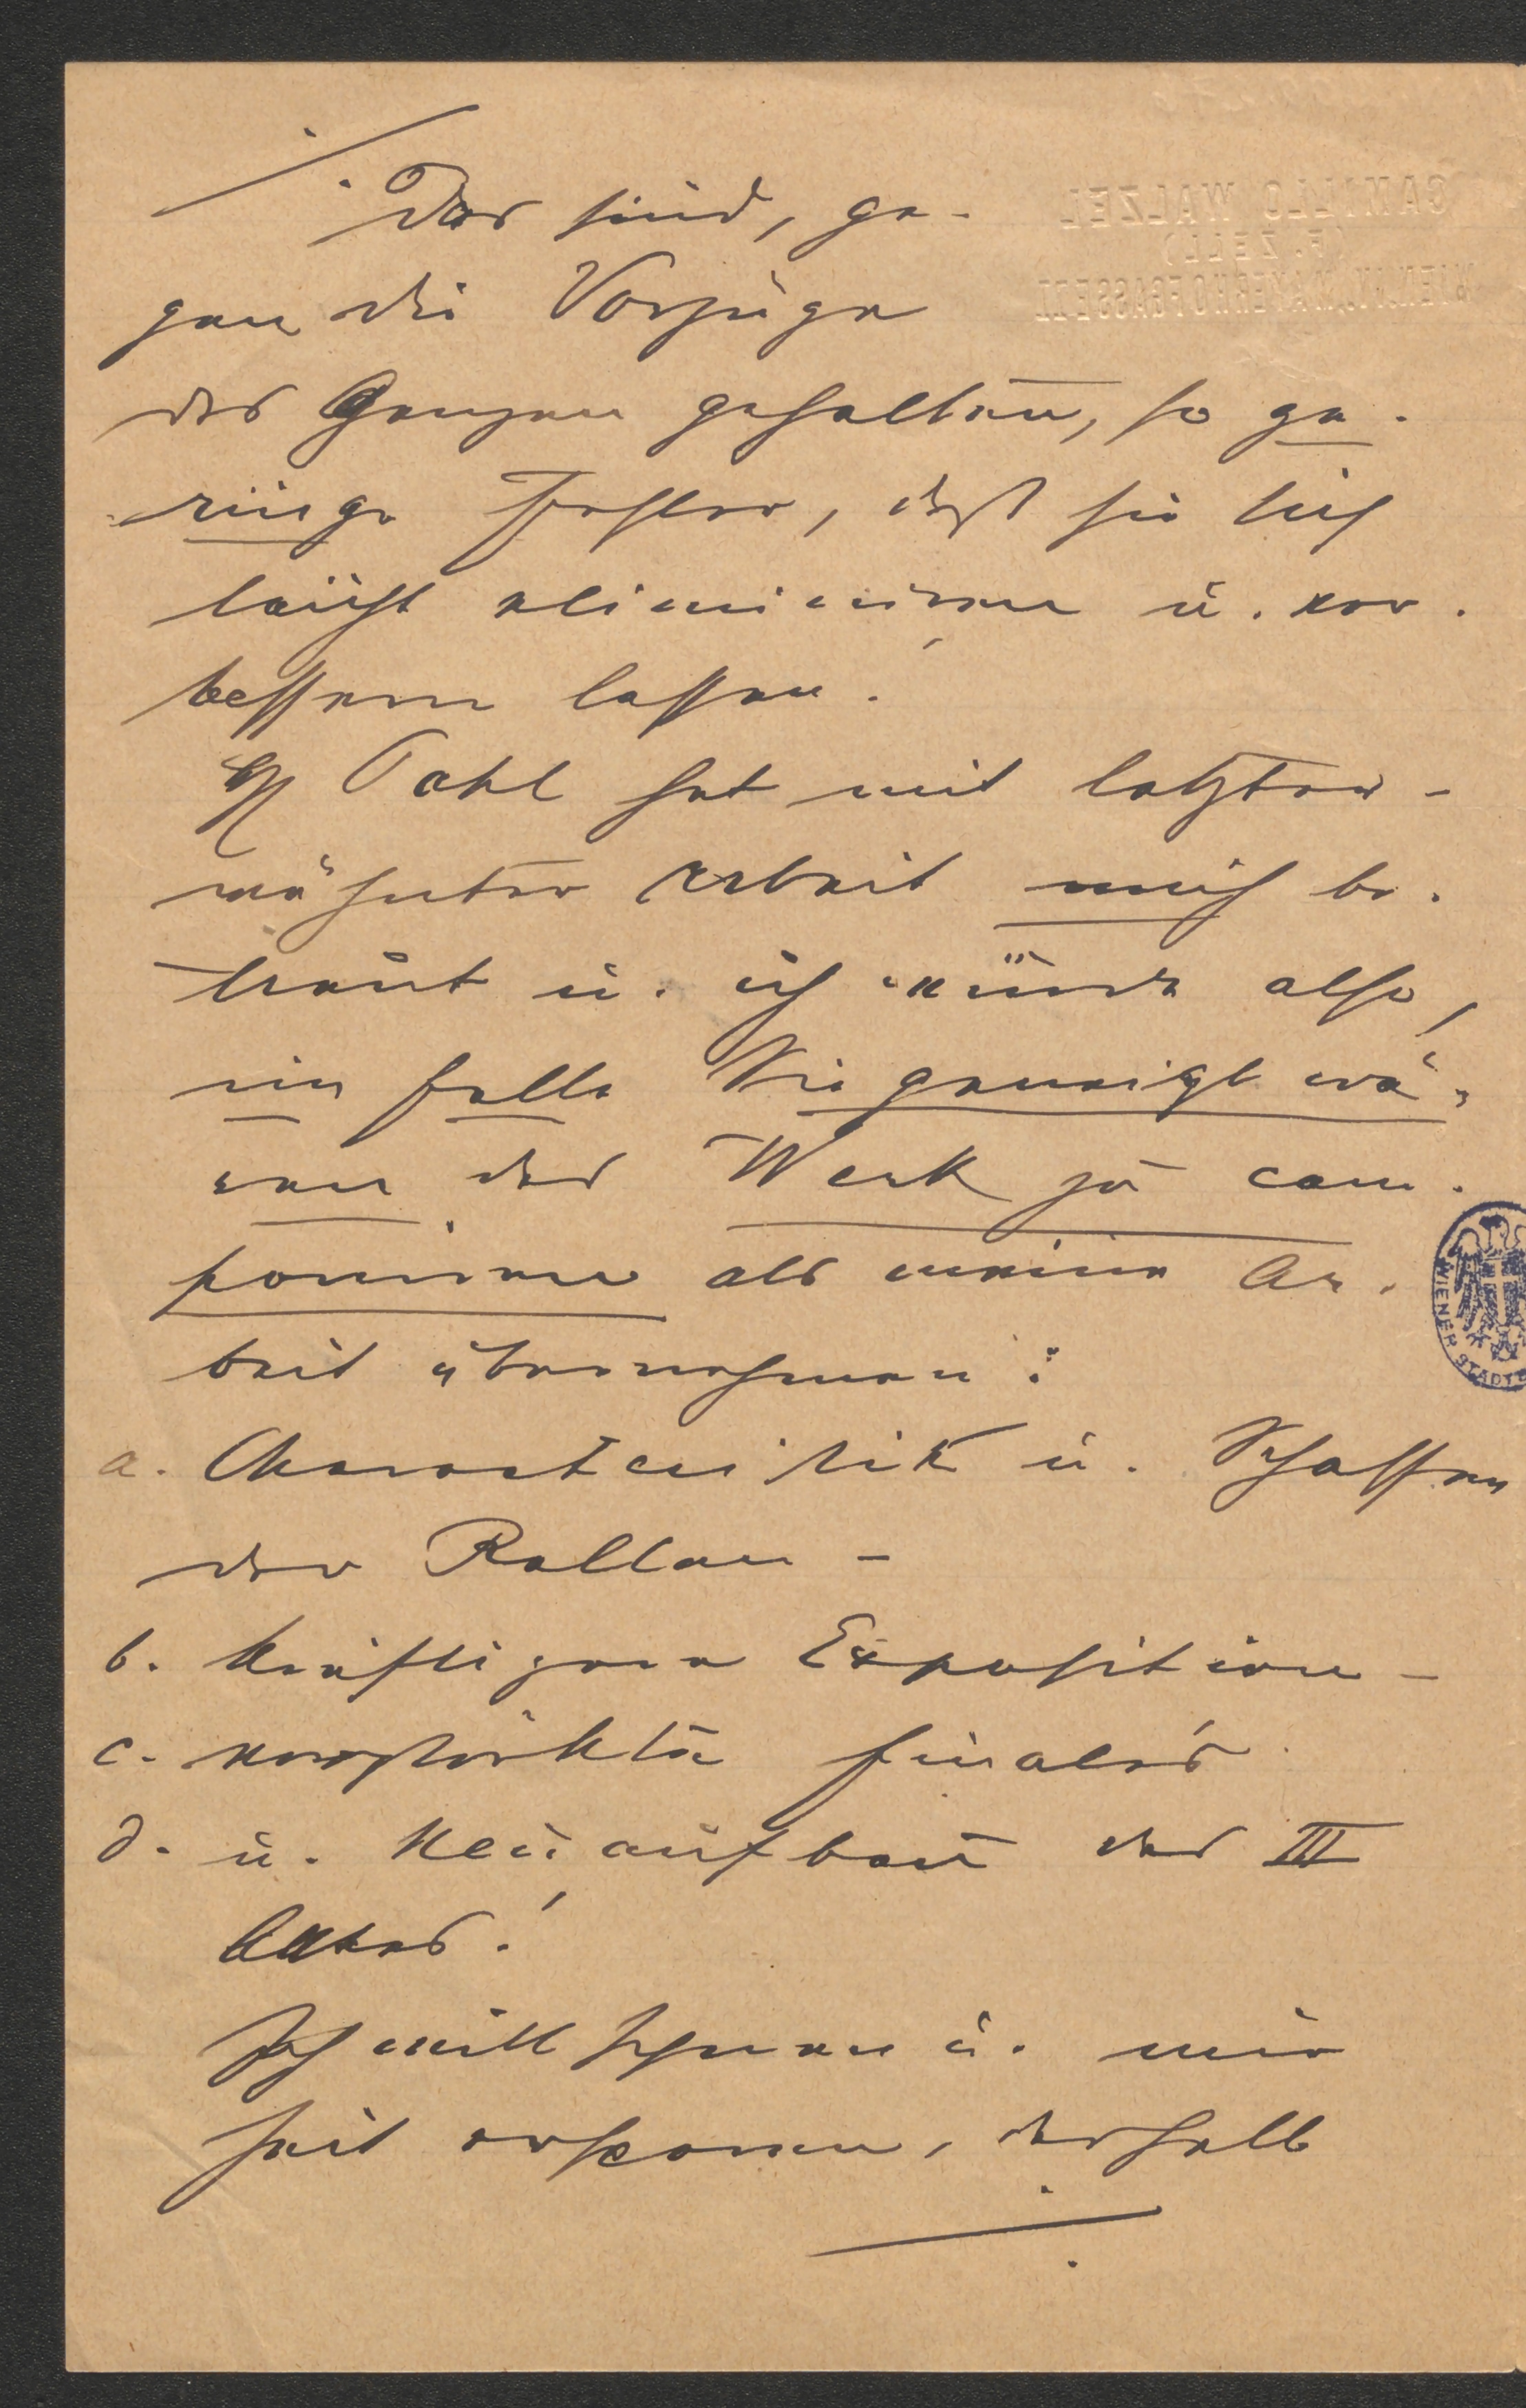 Das sind, ge-
gen die Vorzüge
des Ganzen gehalten, so ge-
ringe Fehler, daß sie sich
leicht eliminiren u. ver-
bessern lassen.
H Pohl hat mit letzter-
wähnter Arbeit mich be-
traut u. ich würde also,
im Falle Sie geneigt wä-
ren das Werk zu com-
poniren als meine Ar-
beit übernehmen:
a. Charakteristik u. Schaffen
der Rollen -
b. kräftigere Exposition -
c. verstärkte Finales
d. u. Neuaufbau des III
Aktes!
Ich will Ihnen u. mir
Zeit ersparen, deshalb
CAMILLO WALZEL
(F. ZELL)
WIEN, IV. MAYERHOFGASSE
WIENER STADTB